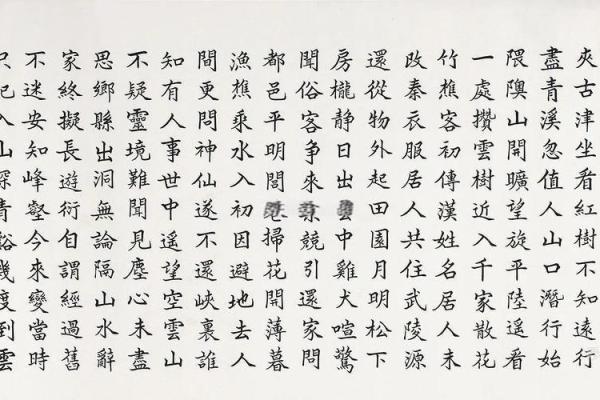 夾古津坐看紅樹不知遠行
盡青溪忽值人山口潛行始
隈隩山開曠望旋平陸遥看
一處攢雲樹近入千家散花
竹樵客初傳漢姓名居人未
改秦衣服居人共住武陵源
還從物外起田園月明松下
房櫳静日出中雞犬喧驚
聞俗客争來競引還家問
都邑平明閭掃花開薄暮
漁樵乘水入初因避地去人
間更問神仙遂不還峽裏誰
知有人事世中遥望空雲山
不疑靈境難聞見塵心未盡
思鄉縣出洞無論隔山水辭
家終擬長遊衍自謂經過舊
不迷安知峰壑今來變當時
只記入山深青谿幾度到雲